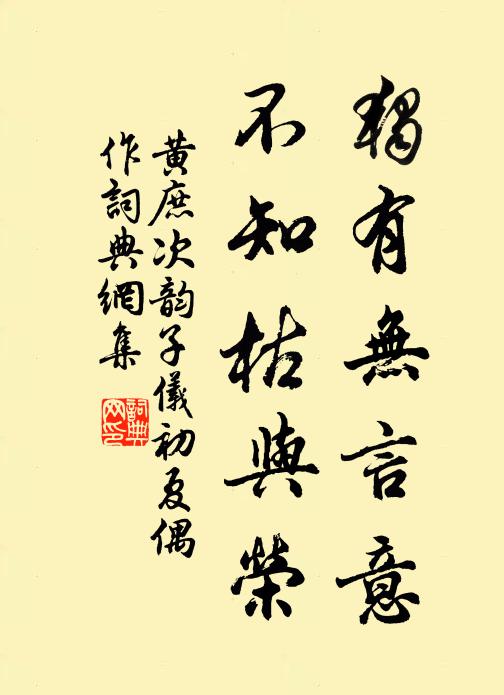 獨有無言意
不知枯與榮
黄庶次韵子儀初夏偶
作詞典網集
詞典
网印